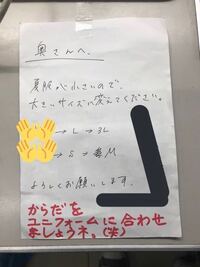 奥さんへ、
夏服が小さいので、
大きいサイズに変えてください。
→ L → 3L
→ S → M
よろしくお願いします。
からだを
ユニフォームに合わせ
ましょうネ。(笑)